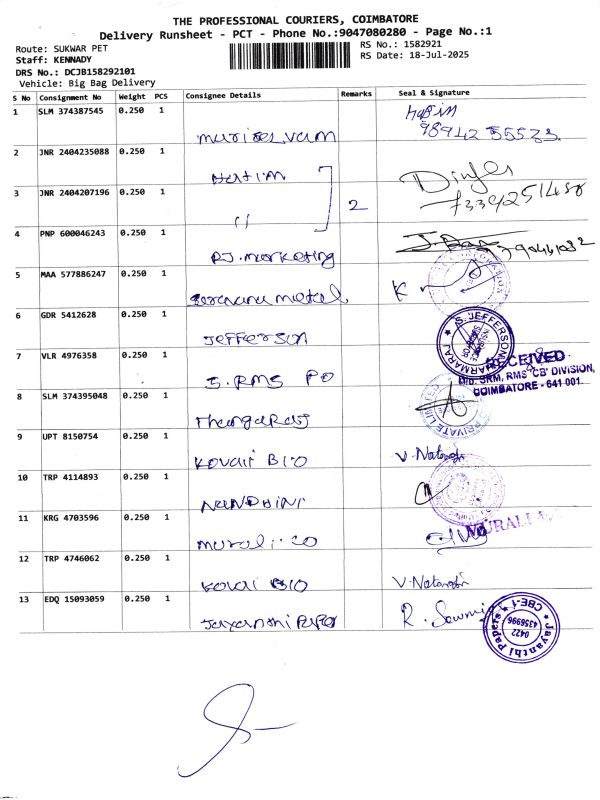 THE PROFESSIONAL COURIERS, COIMBATORE
Delivery Runsheet - PCT - Phone No.:9047080280 - Page No.:1
Route: SUKWAR PET
RS No.: 1582921
Staff: KENNADY
RS Date: 18-Jul-2025
DRS No.: DCJB158292101
Vehicle: Big Bag Delivery
S No Consignment No Weight PCS Consignee Details Remarks Seal & Signature
1 SLM 374387545 0.250 1
2 JNR 2404235088 0.250 1 Hatim
3 JNR 2404207196 0.250 1 11 2
4 PNP 600046243 0.250 1 RJ. marketing
5 MAA 577886247 0.250 1 metal K
6 GDR 5412628 0.250 1 Jefferson S. JEFFERSON DHARMARAJ
7 VLR 4976358 0.250 1 RMS PO RECEIVED
SRM, RMS 'CB' DIVISION,
COIMBATORE - 641 001.
8 SLM 374395048 0.250 1 Thangaraj PRIVATE LIMITED
9 UPT 8150754 0.250 1 Kovai BIO V. Natarajan
10 TRP 4114893 0.250 1 NANDHINI
11 KRG 4703596 0.250 1 murali. co MURALI
12 TRP 4746062 0.250 1 Kovai BIO V. Natarajan
13 EDQ 15093059 0.250 1 Jayanthi Paper R. Sowmi
Jayanthi Papers CBE-1 0422 4356996